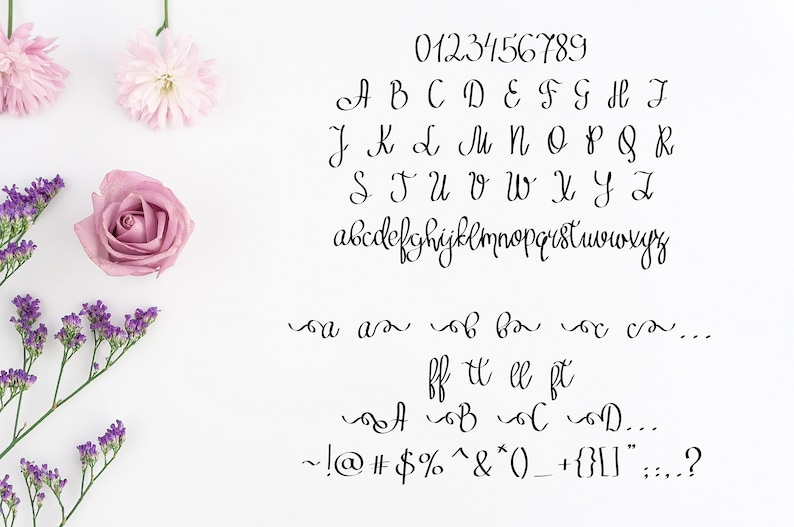 0123456789
A B C D E F G H I
J K L M N O P Q R
S T U V W X Y Z
abcdefghijklmnopqrstuvwxyz
a a b b c c...
ff tt ll ft
A B C D...
~!@#$%^&*()_+{}[]";:,.?